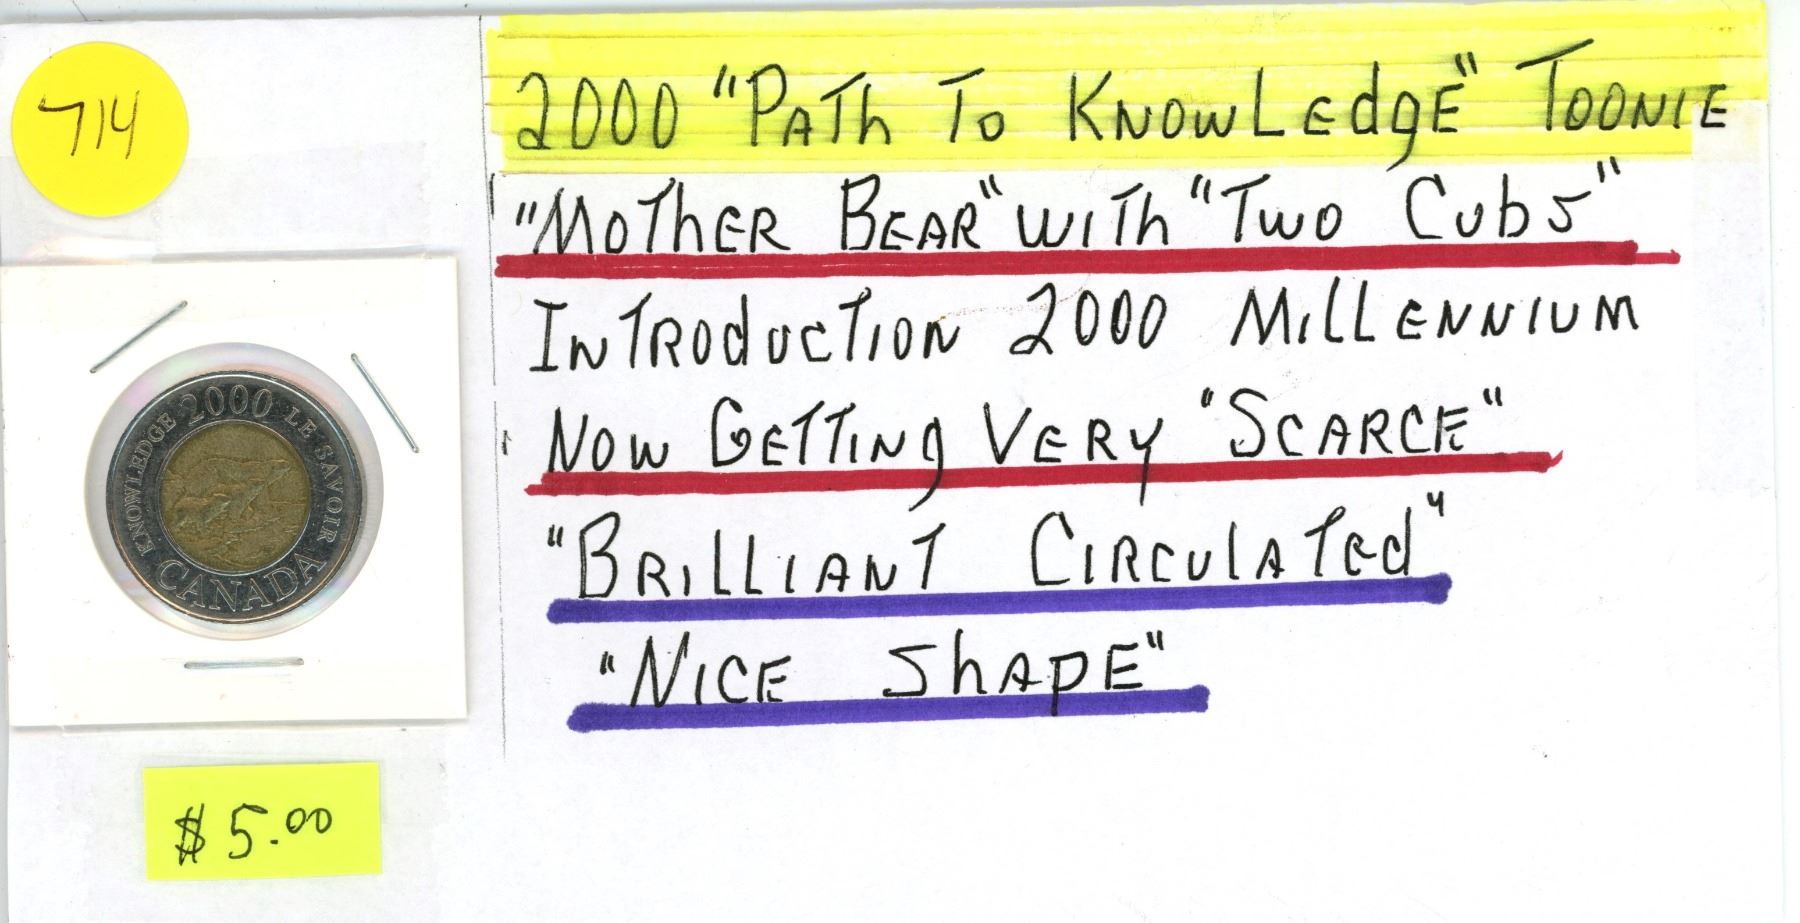 714
2000 "PATh To KNOWLEdgE" TOONIE
"MOThER BEAR" WITh "TWO CUbS"
INTRODUCTION 2000 MILLENNIUM
NOW GETTINg VERY "SCARCE"
"BRILLIANT CIRCULATEd"
"NICE ShAPE"
KNOWLEDGE 2000 LE SAVOIR
CANADA
$5.00